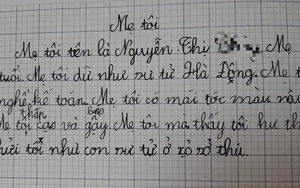 Mẹ tôi
Mẹ tôi tên là Nguyễn Thị Mẹ
tuổi. Mẹ tôi dữ như sư tử Hà Đông. Mẹ t
nghề kế toán. Mẹ tôi có mái tóc màu nâu
thân heo
Mẹ tôi cao và gầy. Mẹ tôi mà thấy tôi hư th
tôi như con sư tử ở sở thú.